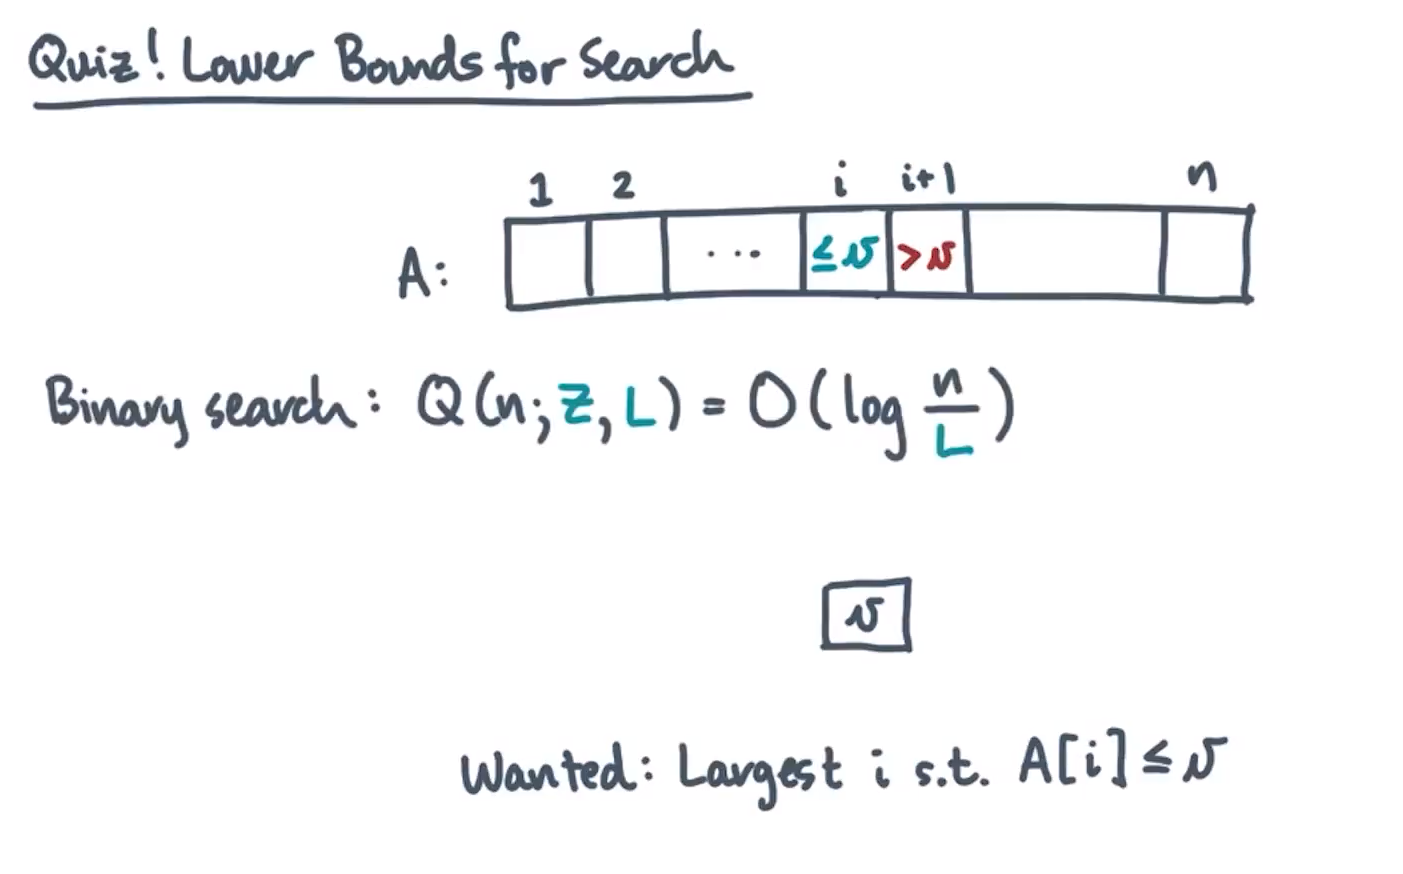 Quiz! Lower Bounds for Search
1 2 i i+1 n
A: ... ≤v >v
Binary search: Q(n; Z, L) = O(log n/L)
v
Wanted: Largest i s.t. A[i] ≤ v